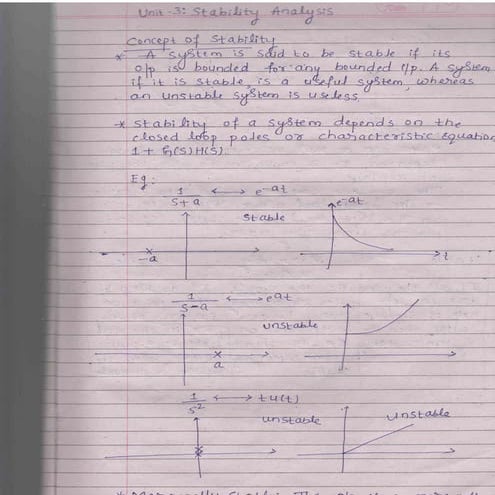 Unit-3: Stability Analysis
Concept of Stability
* A system is said to be stable if its
o/p is bounded for any bounded i/p. A system
if it is stable, is a useful system, whereas
an unstable system is useless.
* Stability of a system depends on the
closed loop poles or characteristic equation
1 + G(S)H(S).
Eg:
1/S+a ⟷ e^-at
Stable
e^-at
-a
t
1/S-a ⟷ e^at
Unstable
a
1/S² ⟷ tu(t)
Unstable
Unstable